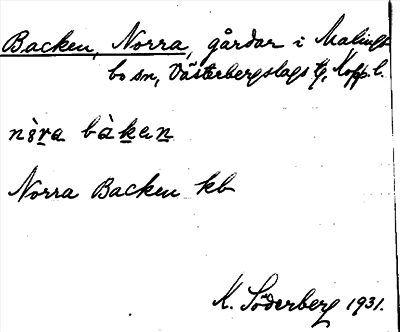 Backen, Norra, gårdar i Malings
bo sn, Västerbergslags tg, Kopp. l.
nò̀ra bàken
Norra Backen kb
K. Söderberg 1931.